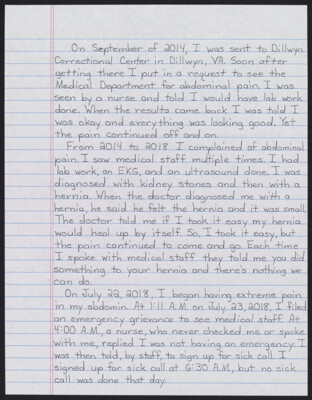 On September of 2014, I was sent to Dillwyn
Correctional Center in Dillwyn, VA. Soon after
getting there I put in a request to see the
Medical Department for abdominal pain. I was
seen by a nurse and told I would have lab work
done. When the results came back I was told I
was okay and everything was looking good. Yet
the pain continued off and on.
From 2014 to 2018 I complained of abdominal
pain. I saw medical staff multiple times. I had
lab work, an EKG, and an ultrasound done. I was
diagnosed with kidney stones and then with a
hernia. When the doctor diagnosed me with a
hernia, he said he felt the hernia and it was small.
The doctor told me if I took it easy my hernia
would heal up by itself. So, I took it easy, but
the pain continued to come and go. Each time
I spoke with medical staff they told me you did
something to your hernia and there's nothing we
can do.
On July 22, 2018, I began having extreme pain
in my abdomin. At 1:11 A.M. on July 23, 2018, I filed
an emergency grievance to see medical staff. At
4:00 A.M., a nurse, who never checked me or spoke
with me, replied I was not having an emergency. I
was then told, by staff, to sign up for sick call. I
signed up for sick call at 6:30 A.M., but no sick
call was done that day.